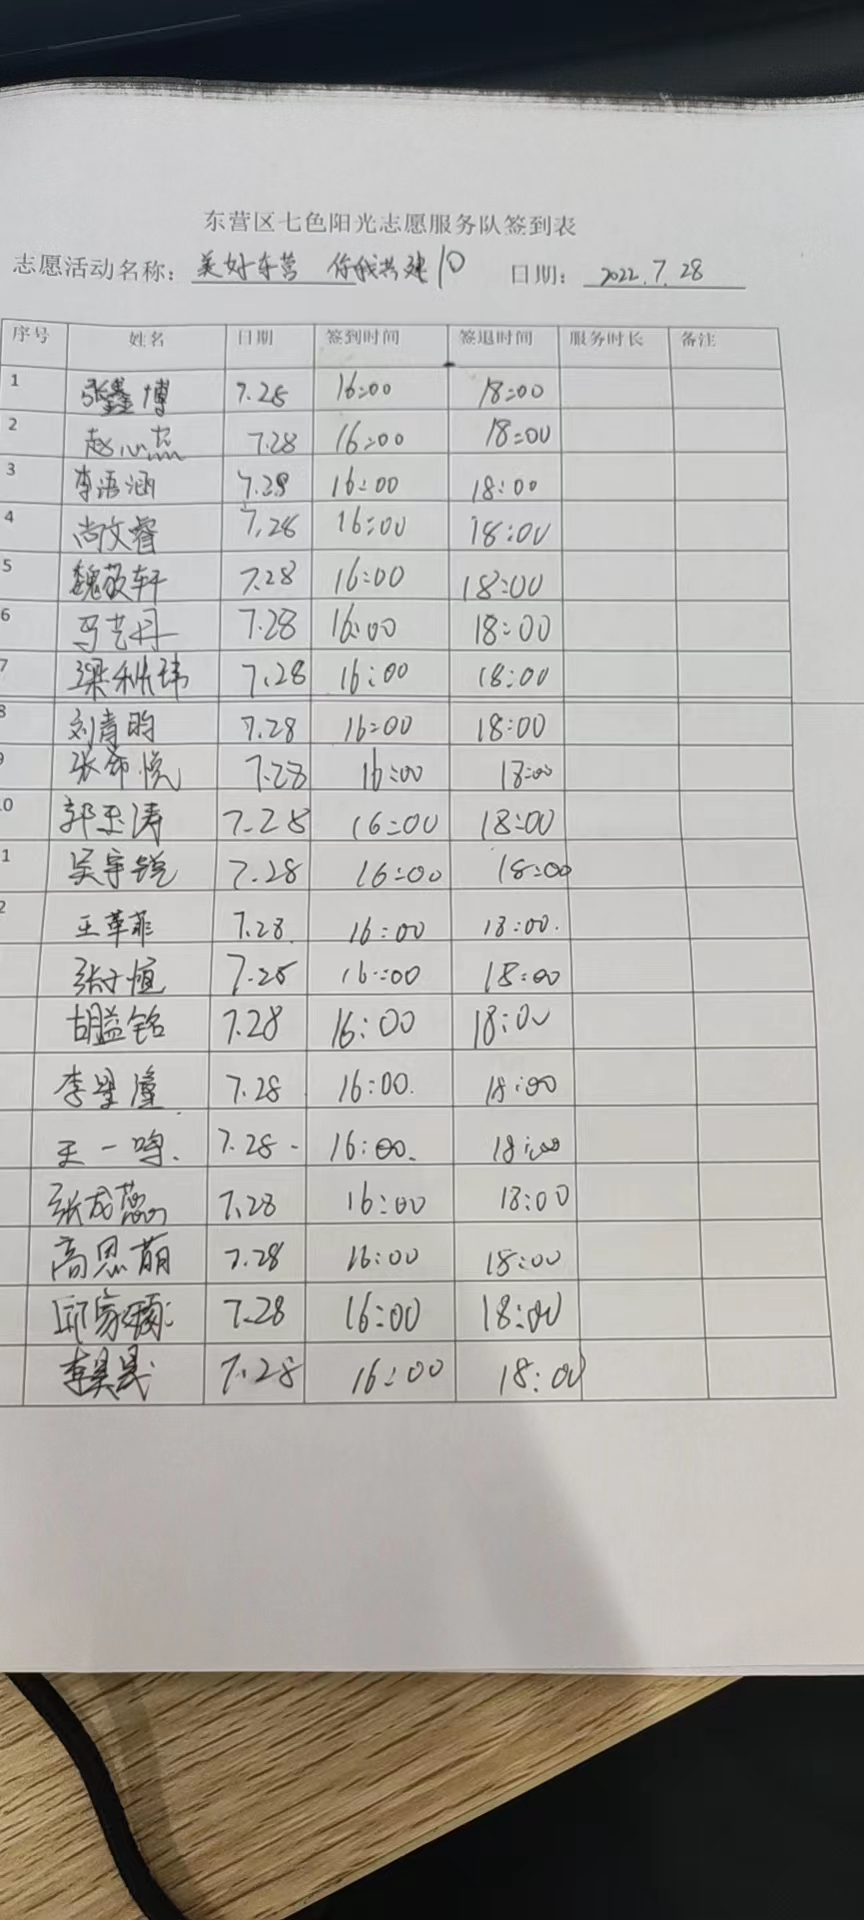 东营区七色阳光志愿服务队签到表
志愿活动名称：美好东营 你我共建10 日期：2022.7.28
序号 姓名 日期 签到时间 签退时间 服务时长 备注
1 张鑫博 7.28 16:00 18:00
2 赵心蕊 7.28 16:00 18:00
3 李语涵 7.28 16:00 18:00
4 尚文睿 7.28 16:00 18:00
5 魏敬轩 7.28 16:00 18:00
6 马艺丹 7.28 16:00 18:00
7 梁利玮 7.28 16:00 18:00
8 刘青昀 7.28 16:00 18:00
9 7.28 16:00 18:00
0 郭玉涛 7.28 16:00 18:00
1 吴宇锐 7.28 16:00 18:00
2 王苹菲 7.28 16:00 18:00.
张子恒 7.28 16:00 18:00
胡益铭 7.28 16:00 18:00
李星潼 7.28 16:00. 18:00
王一鸣. 7.28 16:00. 18:00
张成蕊 7.28 16:00 18:00
高思萌 7.28 16:00 18:00
7.28 16:00 18:00
李昊晟 7.28 16:00 18:00